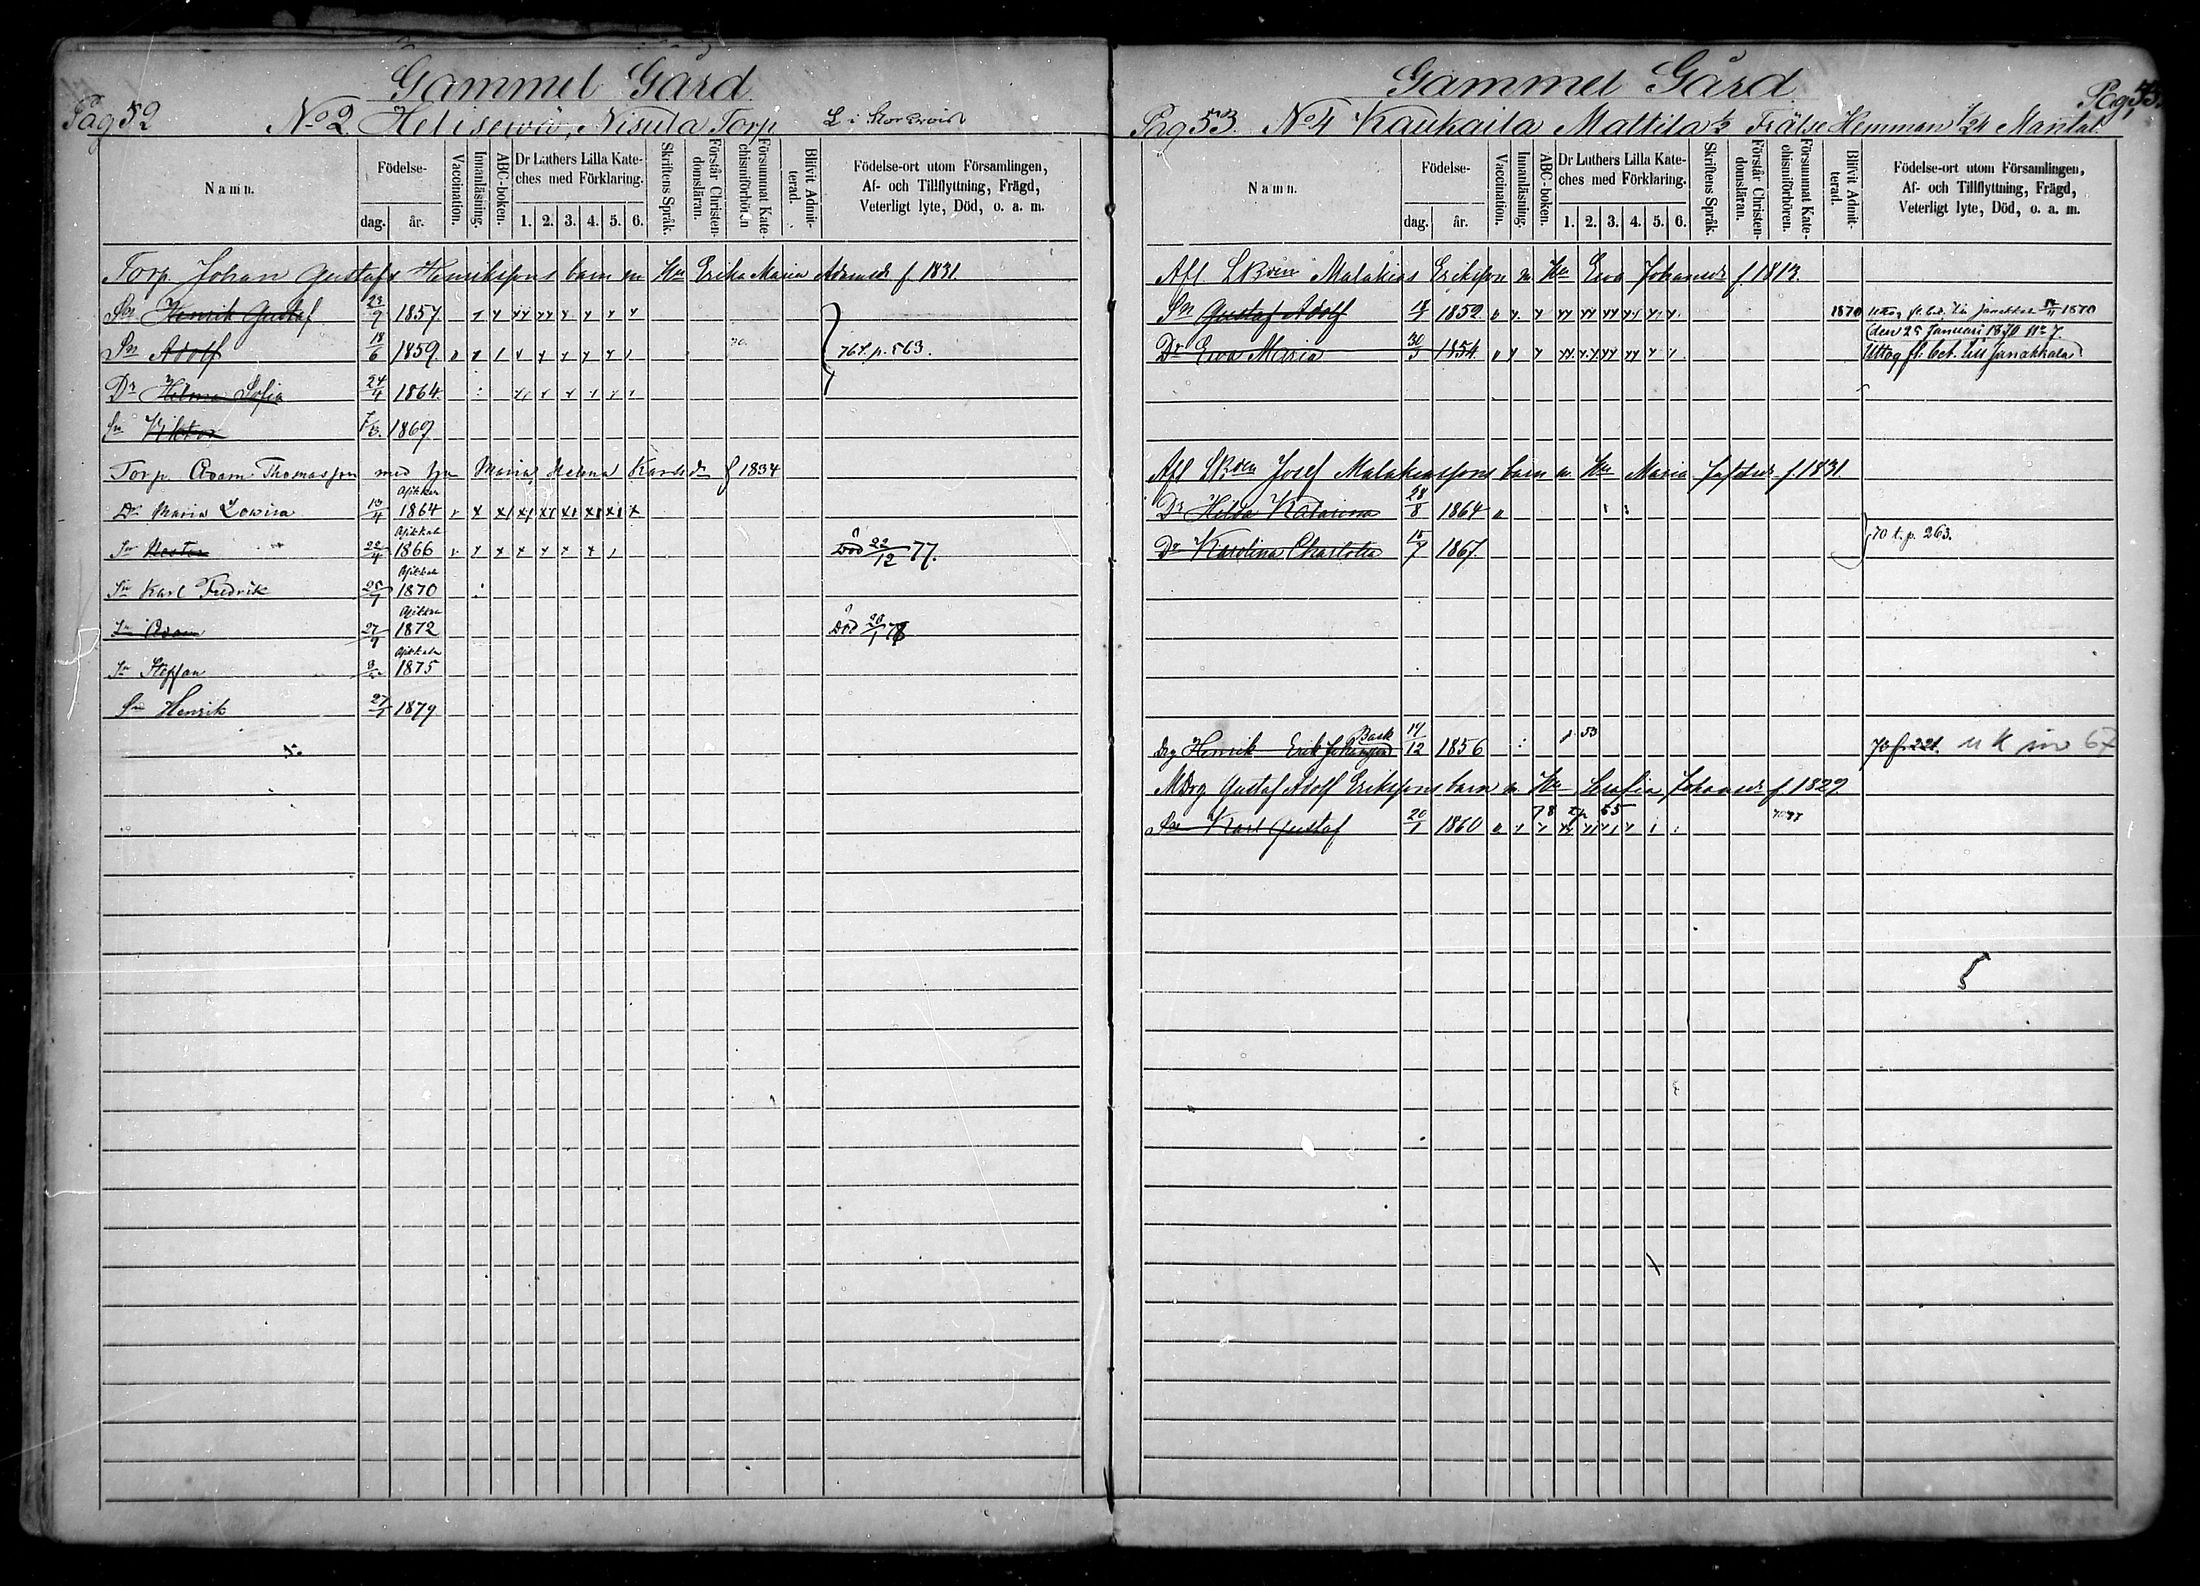 Gammel Gård
Pag 52 No 2 Helisewä, Nisula Torp
Namn.
Födelse-
dag.
år.
Vaccination.
Innanläsning.
ABC-boken.
Dr Luthers Lilla Kate-
ches med Förklaring.
1. 2. 3. 4. 5. 6.
Skriftens Språk.
Förstår Christen-
domsläran.
Försummat Kate-
chismiförhören
Blifvit Admit-
terad.
Födelse-ort utom Församlingen,
Af- och Tillflyttning, Frägd,
Veterligt lyte, Död, o. a. m.
Torp. Johan Gustafs Henrikssons barn m Hu Erika Maria Adamsdr f 1831
Sn Henrik Gustaf 23/9 1857
Sn Adolf 18/6 1859 767. p. 563.
Dr Helma Sofia 24/4 1864
Sn Viktor 7/3 1869
Torp. Adam Thomasson med hu Maria Helena Karlsdr f 1834
Dr Maria Lowisa 13/4 1864
Sn 22/4 1866 Död 22/12 77.
Sn Karl Fredrik 25/1 1870
Sn Adam 27/9 1872 Död 20/1 78
Sn Steffan 1875
Sn Henrik 27/1 1879
Gammel Gård
Pag 53. No 4 Kaukaila Mattila 1/2 Frälse Hemman 1/24 Mantal.
Namn.
Födelse-
dag.
år.
Vaccination.
Innanläsning.
ABC-boken.
Dr Luthers Lilla Kate-
ches med Förklaring.
1. 2. 3. 4. 5. 6.
Skriftens Språk.
Förstår Christen-
domsläran.
Försummat Kate-
chismiförhören.
Blifvit Admit-
terad.
Födelse-ort utom Församlingen,
Af- och Tillflyttning, Frägd,
Veterligt lyte, Död, o. a. m.
Afl. Malakias Eriksson m Hu Ewa Johansdr f. 1813.
Sn Gustaf Adolf 1852 1870 1870
den 25 Januari 1870 No 7.
Dr Ewa Maria 30/3 1854 Uttog fl. bet. till Janakkala
Afl Josef Malakiassons barn m Hu Maria f. 1831.
Dr Hilda Katarina 28/8 1864
Dr Karolina Charlotta 15/7 1867. 70 t. p. 263.
Drg Henrik Erik Johansson Back 14/12 1856 53
MDrg Gustaf Adolf Erikssons barn m Hu Serafia Johansdr f. 1829
Sn Karl Gustaf 20/1 1860
5